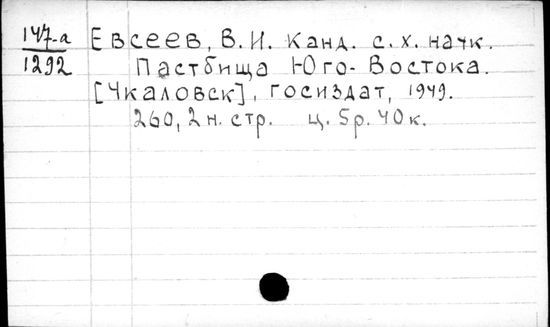 147-а Евсеев, В.И. Канд. с.х. наук.
1292 Пастбища Юго-Востока.
[Чкаловск], Госиздат, 1949.
260, 2 н. стр. ц. 5р. 40к.